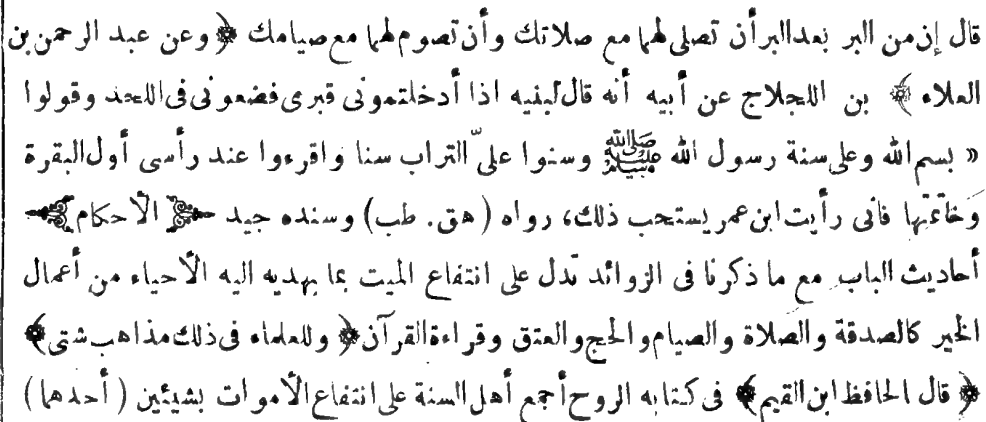 قال إن من البر بعد البر أن تصلى لهما مع صلاتك وأن تصوم لهما مع صيامك ﴿ وعن عبد الرحمن بن
العلاء ﴾ بن اللجلاج عن أبيه أنه قال لبنيه اذا أدخلتمونى قبرى فضعونى فى اللحد وقولوا
« بسم الله وعلى سنة رسول الله ﷺ وسنوا علىّ التراب سنا واقرءوا عند رأسى أول البقرة
وخاتمتها فانى رأيت ابن عمر يستحب ذلك، رواه ( هق . طب) وسنده جيد ﴿ الأحكام ﴾
أحاديث الباب مع ما ذكرنا فى الزوائد تدل على انتفاع الميت بما يهديه اليه الأحياء من أعمال
الخير كالصدقة والصلاة والصيام والحج والعتق وقراءة القرآن ﴿ وللعلماء فى ذلك مذاهب شتى ﴾
﴿ قال الحافظ ابن القيم ﴾ فى كتابه الروح أجمع أهل السنة على انتفاع الأموات بشيئين ( أحدهما )